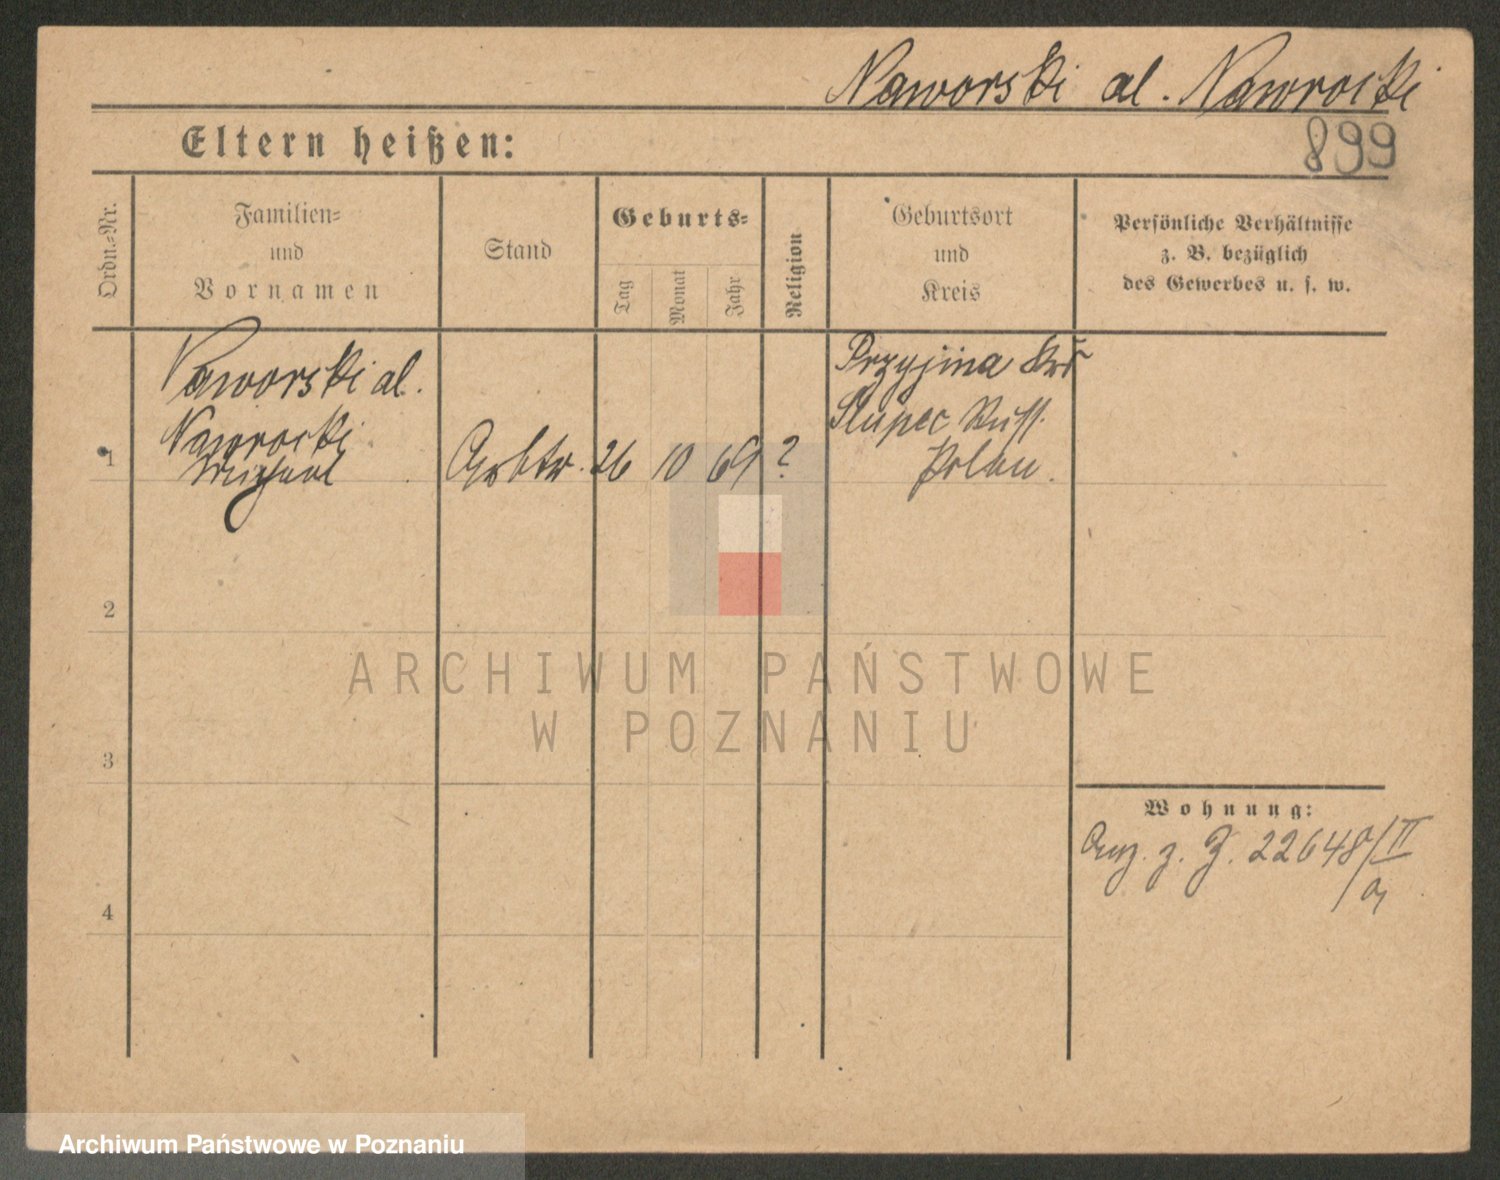 Naworski al. Nawrocki
Eltern heißen:
899
Ordn.-Nr.
Familien-
und
Vornamen
Stand
Geburts-
Tag
Monat
Jahr
Religion
Geburtsort
und
Kreis
Persönliche Verhältnisse
z. B. bezüglich
des Gewerbes u. s. w.
1
Naworski al.
Nawrocki
Michael
Arbtr.
26
10
69
?
Przyjma Krs
Slupec Russ.
Polen.
2
3
4
Wohnung:
Anz. z. J. 22648/II
ARCHIWUM PAŃSTWOWE
W POZNANIU
Archiwum Państwowe w Poznaniu